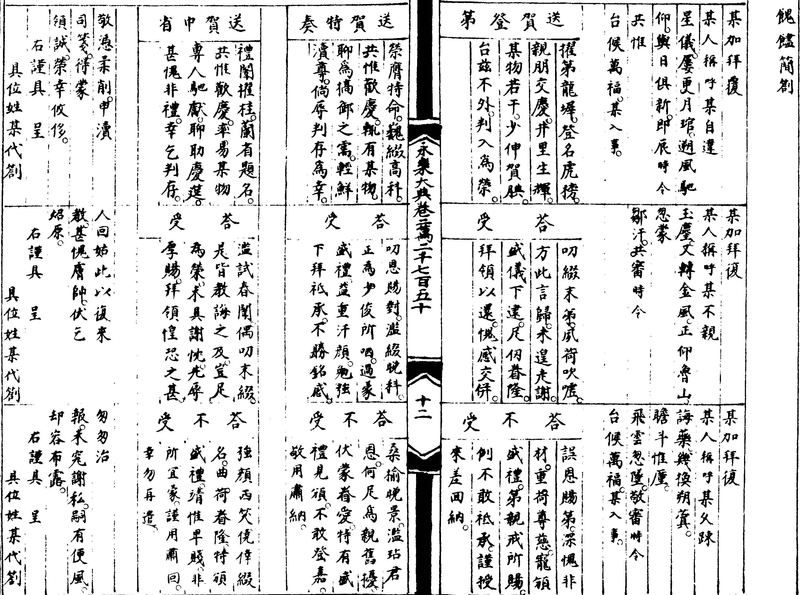 餽饁簡劄
某加拜覆
某人稱呼某自違
星儀屢更月琯遡風馳
仰與日俱新即辰時令
共惟
台候萬福某入事
送賀登第
擢第龍墀登名虎榜
親朋交慶井里生輝
某物若干少伸賀腆
台兹不外判入為榮
送賀特奏
榮膺特命巍綴高科
共惟歡慶輒有某物
聊為犒御之需輕鮮
瀆尊倘辱判存為幸
送賀中省
禮闈擢桂蘭省題名
共惟歡慶率易某物
專人馳獻聊助慶筵
甚愧非禮幸乞判存
敬憑柔削申瀆
司箋得蒙
領誠榮幸攸侈
右謹具 呈
具位姓某代劄
某加拜復
某人稱呼某不親
玉麈又轉金風正仰魯山
忽蒙
鄒汗共審時令
答受
叨綴末第夙荷吹噓
方此言歸未遑走謝
盛儀下逮足仞眷隆
拜領以還愧感交併
答受
叨恩賜對濫綴晚科
正為少俊所哂過蒙
盛禮益重汗顏勉強
下拜祗承不勝銘感
答受
濫試春闈偶叨末綴
是皆教誨之及宜足
為榮未具謝忱先辱
厚賜拜領惶恐之甚
人回姑此以復來
教甚愧膚帥伏乞
炤原
右謹具 呈
具位姓某代劄
某加拜復
某人稱呼某久疎
誨藥幾換朔蓂
瞻斗惟厪
飛雲忽墜敬審時令
台候萬福某入事
答不受
誤恩賜第深愧非
材重荷尊慈寵頒
盛禮第親戒所賜
例不敢祗承謹授
來差回納
答不受
桑榆晚景濫玷君
恩何足為親舊擾
伏蒙眷愛特有盛
禮見頒不敢登嘉
敬用肅納
答不受
強顏西笑僥倖綴
名曲荷眷隆特頒
盛禮靖惟卑賤非
所宜蒙謹用肅回
幸勿再遣
匆匆治
報未究謝私嗣有便風
却容布露
右謹具 呈
具位姓某代劄
永樂大典卷二萬二千七百五十
十二